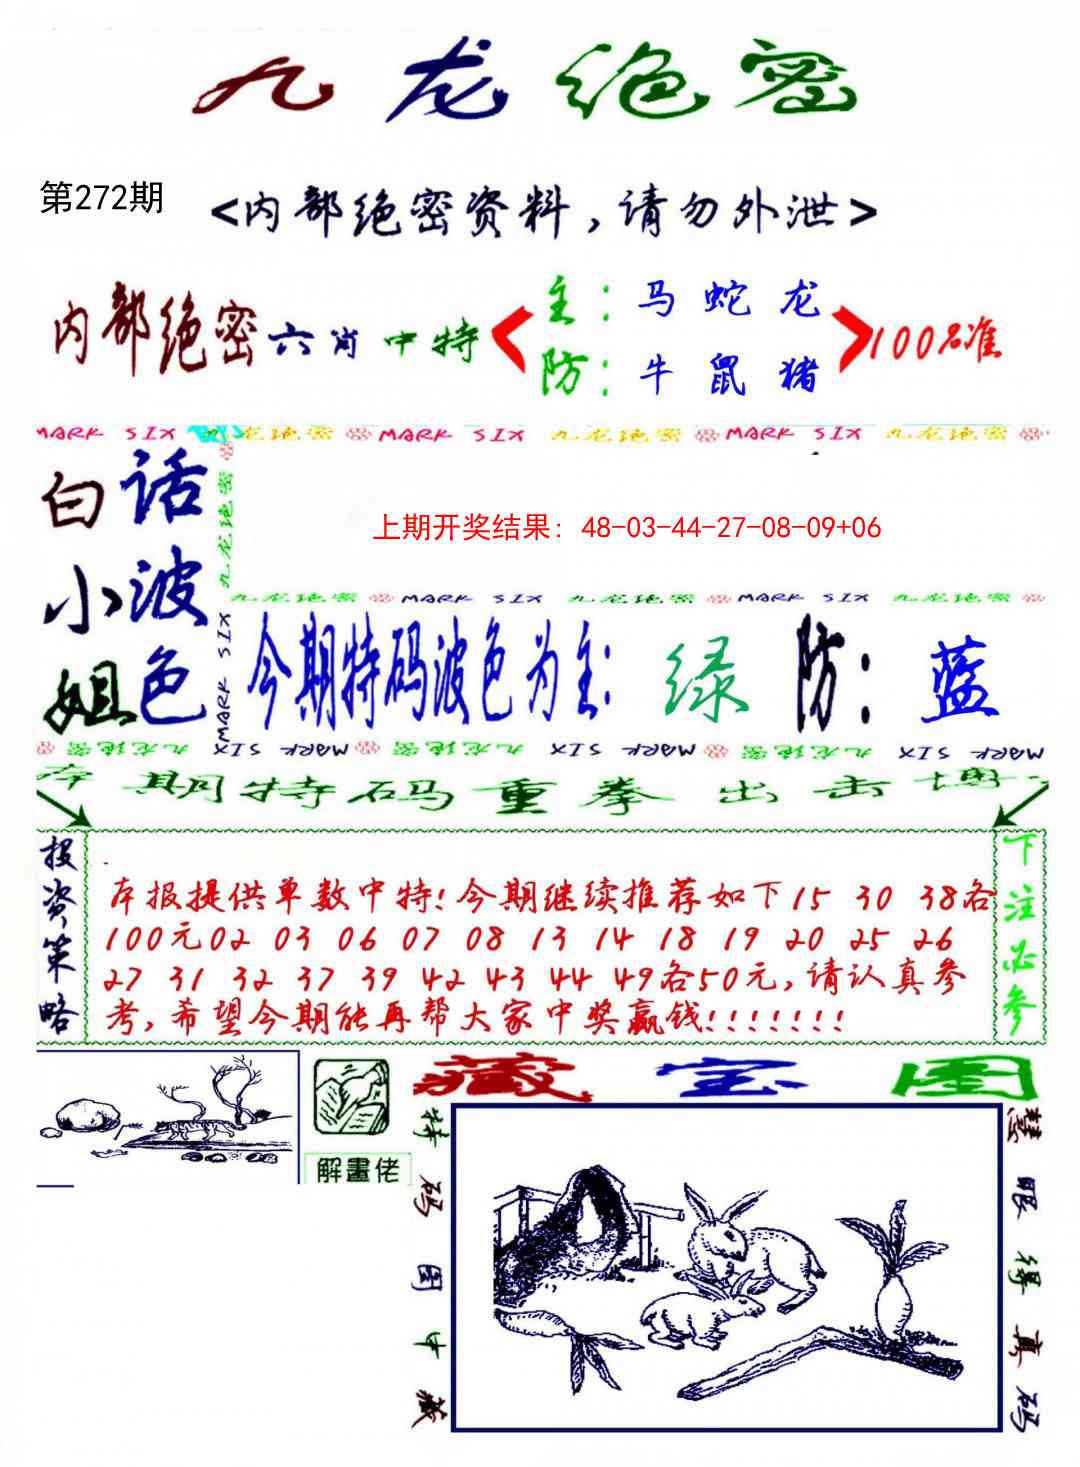 九龙绝密
第272期
<内部绝密资料,请勿外泄>
内部绝密六肖中特
主:马 蛇 龙
防:牛 鼠 猪
100%准
MARK SIX 九龙绝密 MARK SIX 九龙绝密 MARK SIX 九龙绝密
九龙绝密
MARK SIX
白小姐
话波色
上期开奖结果: 48-03-44-27-08-09+06
九龙绝密 MARK SIX 九龙绝密 MARK SIX 九龙绝密
今期特码波色为主: 绿 防: 蓝
九龙绝密 MARK SIX 九龙绝密 MARK SIX 九龙绝密 MARK SIX
本期特码重拳出击博
投资策略
本报提供单数中特!今期继续推荐如下15 30 38各
100元02 03 06 07 08 13 14 18 19 20 25 26
27 31 32 37 39 42 43 44 49各50元,请认真参
考,希望今期能再帮大家中奖赢钱!!!!!!!
下注必参
解畫佬
藏宝图
特码图中藏
慧眼得真码